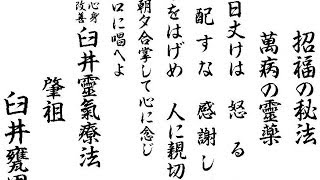 招福の秘法
萬病の霊薬
日丈けは 怒るな
配すな 感謝し
をはげめ 人に親切
朝夕合掌して心に念じ
口に唱へよ
心身改善 臼井靈氣療法
肇祖
臼井甕男